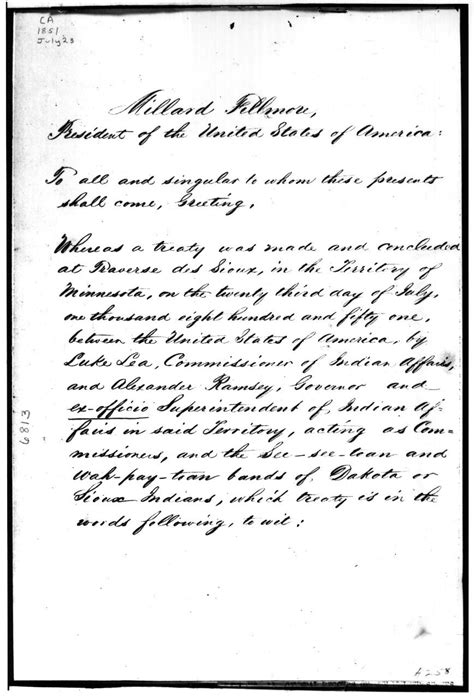 CA
1851
July 23
Millard Fillmore,
President of the United States of America:
To all and singular to whom these presents
shall come, Greeting,
Whereas a treaty was made and concluded
at Traverse des Sioux, in the Territory of
Minnesota, on the twenty third day of July,
one thousand eight hundred and fifty one,
between the United States of America, by
Luke Lea, Commissioner of Indian Affairs,
and Alexander Ramsey, Governor and
ex-officio Superintendent of Indian Af-
fairs in said Territory, acting as Com-
missioners, and the See-see-toan and
Wah-pay-toan bands of Dakota or
Sioux Indians, which treaty is in the
words following, to wit:
6813